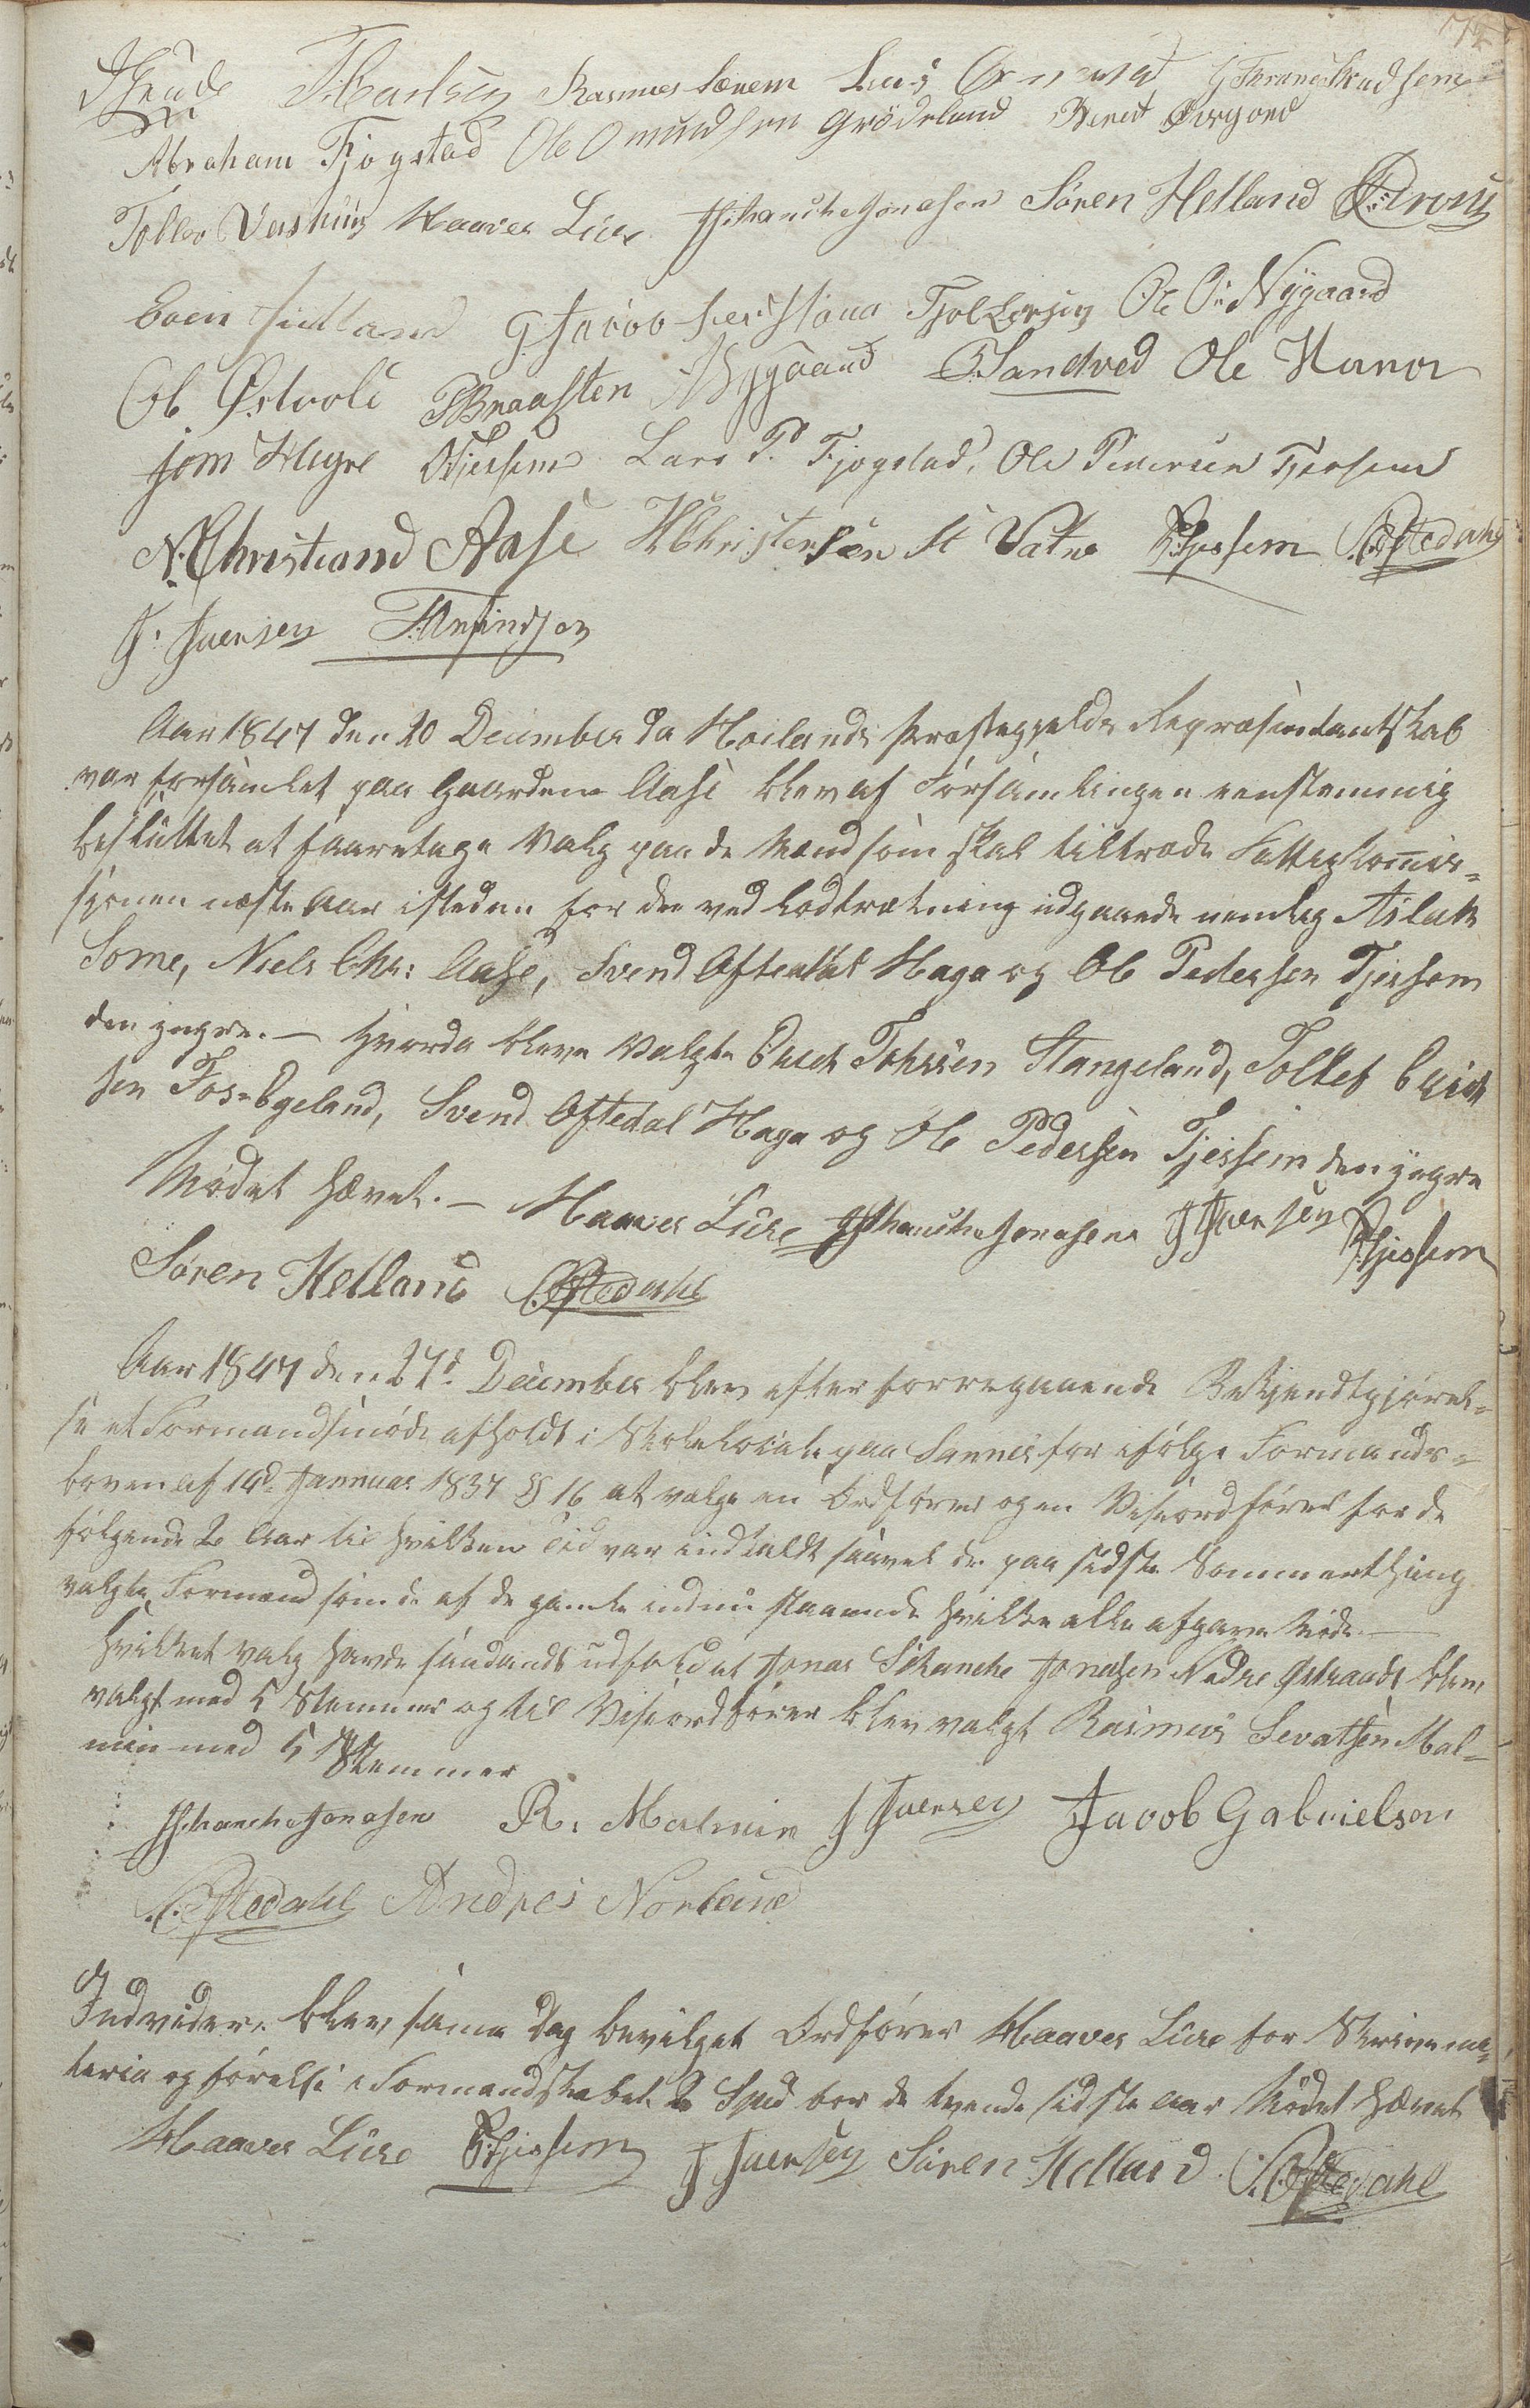 Rasmus Lænem Lars
Abraham Fjogstad Ole Omundsen Grödeland Berent Övrgord
Tollev Haaver Lure JSchancheJonasen Sören Helland
Jacob Ole O: Nygaard
Ol. Østvold PBraasten Nygaard Sandved Ole Hana
Jom Høyre Lars P. Fjogstad, Ole Pedersen Tjersem
N. Christiand Aase Christensen St Vatne Tjessem S. Oftedahl
J. Iversen
Aar 1847 den 20 December da Høilands Præstegjelds Repræsentantskab
var forsamlet paa Gaarden Aase blev af Forsamlingen eenstemmig
besluttet at foaretage Valg paa de Mænd som skal tiltræde Fattigkomis=
sjonen næste Aar isteden for de ved Lodtrækning udgaaede nemlig Aslak
Some, Niels Chr: Aase, Svend Oftedal Haga og Ole Pedersen Tjersem
den yngre. — hvorda bleve Valgte Erich Tohrsen Stangeland, Tollef Erich
sen Foss-Egeland, Svend Oftedal Haga og Ole Pedersen Tjessem den yngre
Mødet hævet. — Haaver Lure JSchancheJonasen J Iversen Tjessem
Sören Helland S. Oftedahl
Aar 1847 den 27d December blev efter forregaaende Bekjendtgjørel=
se et Formandsmøde afholdt i Skolelocale paa Sannes for ifølge Formands=
loven af 14d Januar 1837 § 16 at valge en Ordfører og en Viseordfører for de
følgende 2 Aar til hvilken Tid var indkaldt saavel de paa sidste Sommerthing
valgte Formænd som de af de gamle endnu staaende hvilke alle afgave Møde —
hvilket valg havde saadandt udfald at Jonas Schanche Jonasen Nedre Østraadt blev
valgt med 5 Stemmer og til Viseordfører blev valgt Rasmus Sevatsen Mal=
min med 5 Stemmer
JSchancheJonasen R. Malmin J Iversen Jacob Gabrielsen
S. Oftedahl Andres Norland
Indvidere blev samme dag bevilget Ordfører Haaver Lure for Skrivema=
teria og førelse i Formandskabet 2 Spd for de tvende sidste Aar Mødet Hævet
Haaver Lure Tjessem J Iversen Sören Helland S. Oftedahl